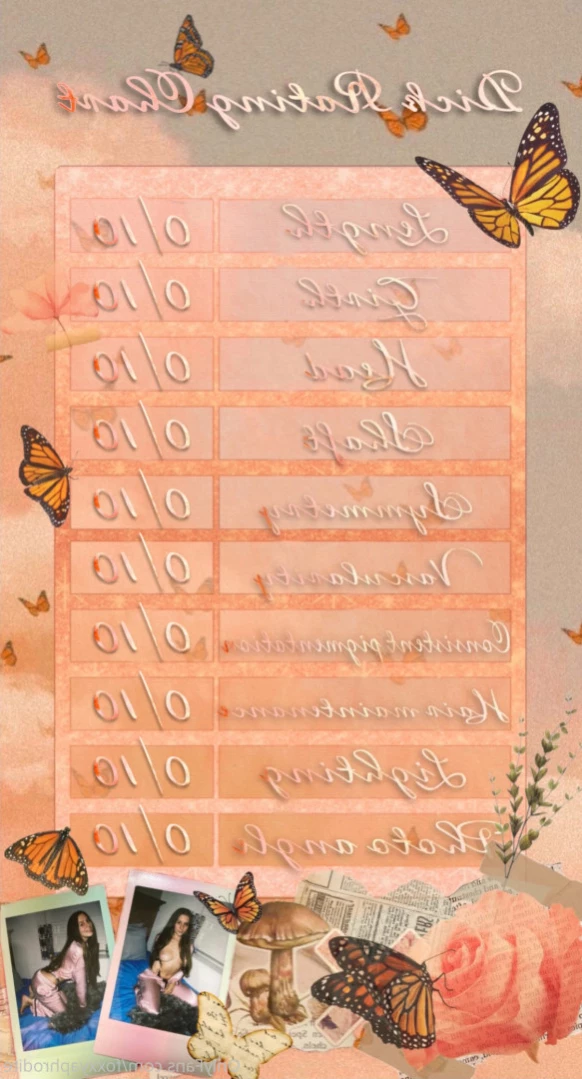 Dick Rating Chart
Length 0/10
Girth 0/10
Head 0/10
Shaft 0/10
Symmetry 0/10
Vascularity 0/10
Consistent pigmentation 0/10
Hair maintenance 0/10
Lighting 0/10
Photo angle 0/10